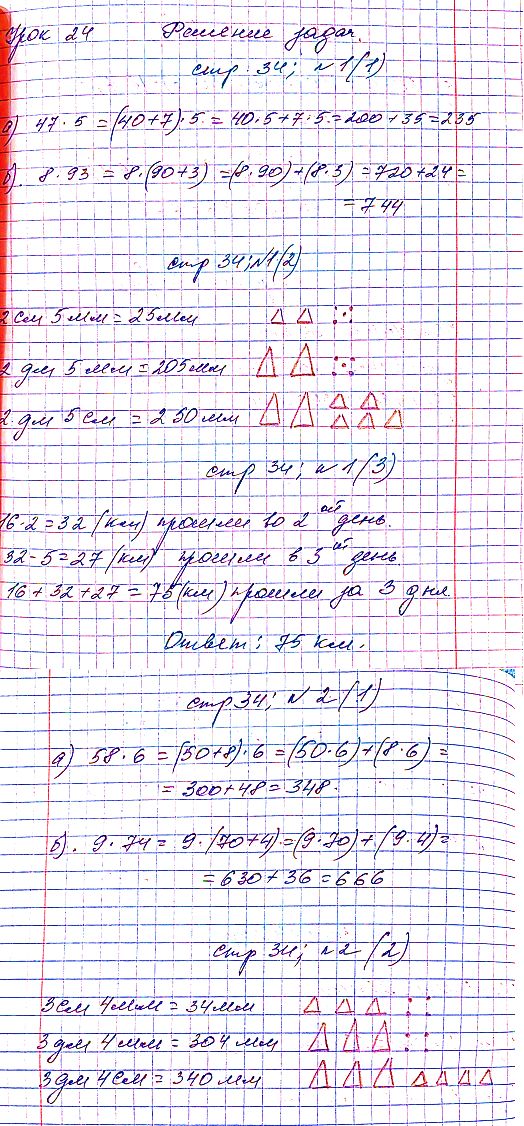 Урок 24 Решение задач.
стр. 34; №1(1)
а) 47·5 = (40+7)·5 = 40·5+7·5 = 200+35=235
б). 8·93 = 8·(90+3) = (8·90)+(8·3) = 720+24 =
= 744
стр 34; №1(2)
2 см 5 мм = 25 мм
2 дм 5 мм = 205 мм
2 дм 5 см = 250 мм
стр 34; №1(3)
16·2=32 (км) прошли во 2ой день.
32-5=27 (км) прошли в 3ий день
16+32+27=75(км) прошли за 3 дня.
Ответ: 75 км.
стр 34; №2(1)
а) 58·6 = (50+8)·6 = (50·6)+(8·6) =
= 300+48=348.
б). 9·74 = 9·(70+4)=(9·70)+(9·4)=
= 630+36=666
стр 34; №2(2)
3см 4мм = 34мм
3 дм 4 мм = 304 мм
3 дм 4см = 340 мм